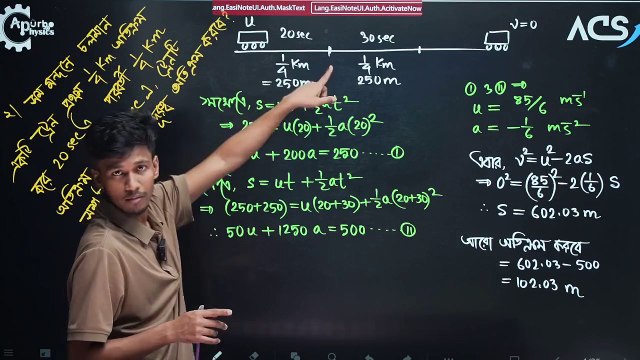 Lang.EasiNoteUI.Auth.MaskText
Lang.EasiNoteUI.Auth.AcitivateNow
Apurbo
Physics
ACS
২) সম মন্দনে চলমান
একটি ট্রেন প্রথম 1/4 km অতিক্রম
করে 20 sec এ
পরবর্তী 1/4 km
ট্রেনটি
অতিক্রম করবে?
u
20sec
30sec
v=0
1/4 Km
1/4 Km
= 250m
250m
S = ut + 1/2at²
u(20)+1/2a(20)²
u + 200a = 250 ····· ①
S = ut + 1/2at²
⇒ (250+250) = u(20+30)+1/2a(20+30)²
∴ 50u + 1250a = 500 ····· ⑪
① ও ⑪ ⇒
u = 85/6 ms⁻¹
a = -1/6 ms⁻²
এবার, v² = u² - 2as
⇒ 0² = (85/6)² - 2(1/6) S
∴ S = 602.03 m
আরো অতিক্রম করবে
= 602.03 - 500
= 102.03 m